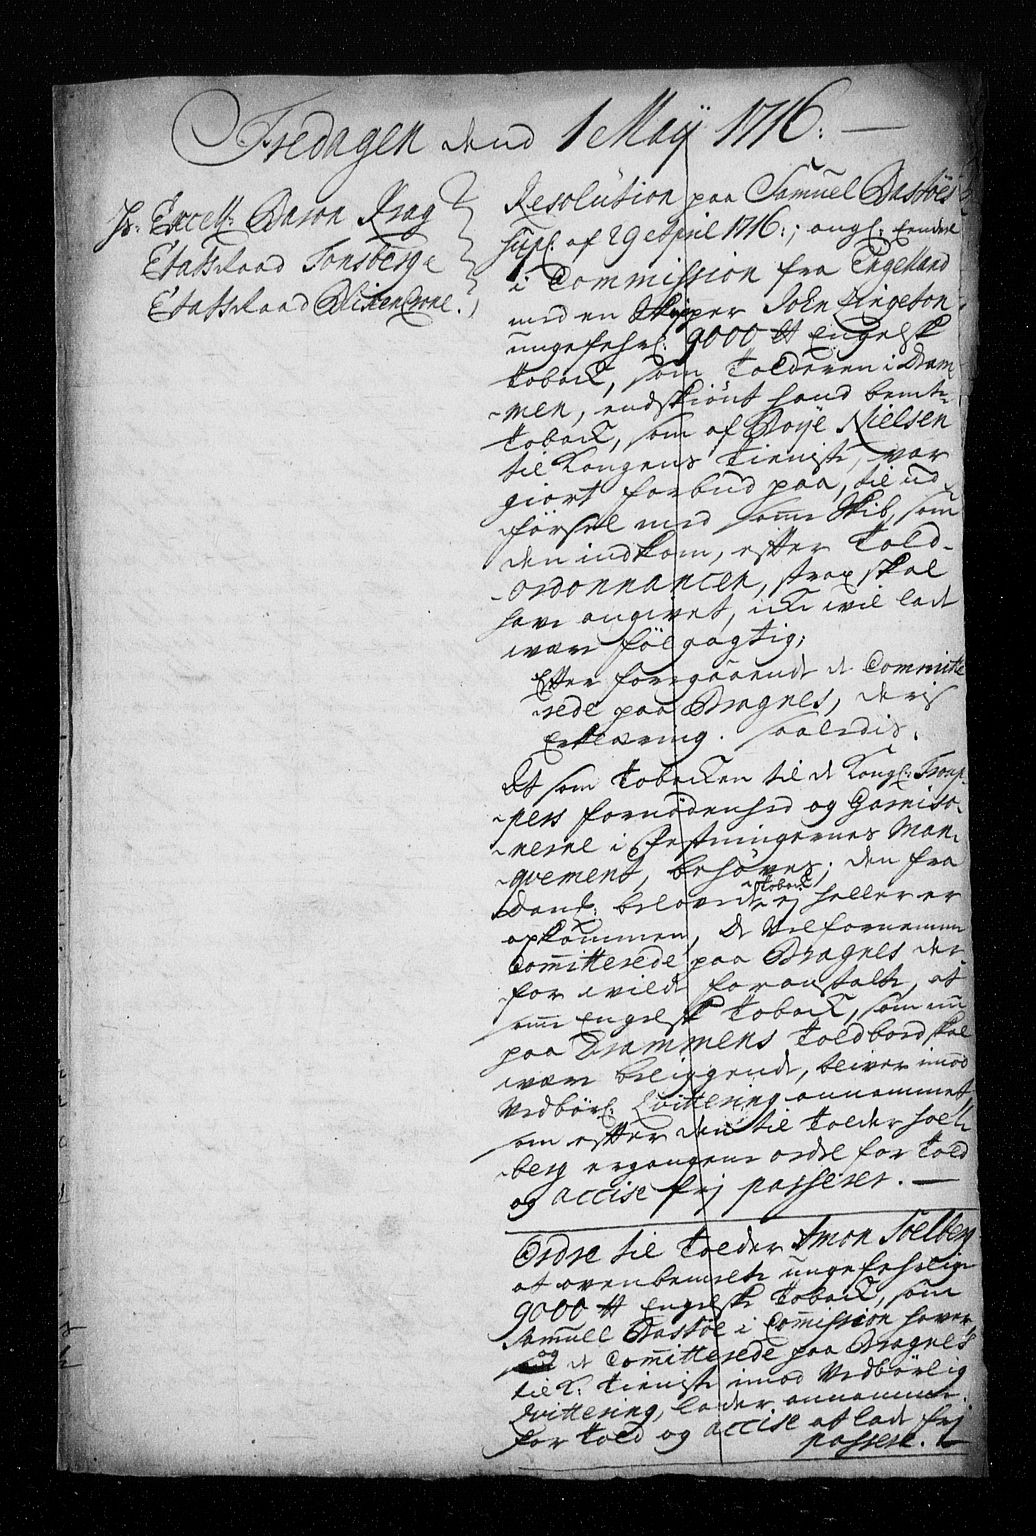 Fredagen dend 1 Maÿ 1716. —
Hr. Excell. Baron Krag
Etatsraad Tonsberg
Etatsraad Blixencrone.
Resolution paa Samuel Bastøes
Supl. af 29 April 1716.; ang. hendte
i Commission fra Engelland
med en Skipper John Dingeton
ungefehr. 9000 ℔ Engelsk
toback, som tolderen i Dram-
-men, endskiønt hand bemte
toback, som af Boÿe Nielsen
til Kongens tieniste, var
giort forbud paa, til ud-
-førsel med samme Skib, som
den indkom, efter Told-
-ordonnancen, strax skal
have angivet, icke vil lade
være følgagtig;
Efter foregaaende de Committe
rede paa Bragnes, deris
Erklæring. saaledis.
At som tobacken til de Kongl. Troup-
-pers fornødenhed og Garniso-
-nerne i Festningernes Man-
-qvement, behøves; den fra
Dank: belovede toback ej heller er
opkommen, De Velfornemme
Committerede paa Bragnes der-
for vilde foranstalte, at
samme Engelsk toback, som nu
paa Drammens Toldbord skal
være beliggende, bliver imod
Vedbørl. Qvittering annammet,
som efter den til tolder Soel-
berg ergangene ordre for told
og accise frj passeres. —
Ordre til tolder Amon Soelberg
at ovenbemelte ungefehrlig
9000 ℔ Engelsk toback, som
Samuel Bastøe i Commission haver,
og de Committerede paa Bragnes
til K. tieniste imod Vedbørlig
Qvittering, lader annamme
for told og accise at lade frj
passere. —